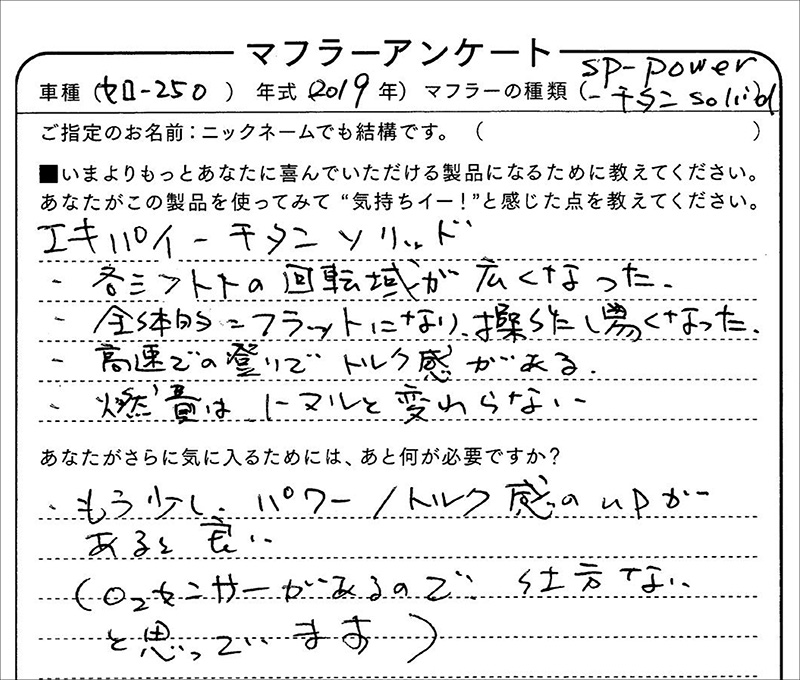 マフラーアンケート
車種（セロー250　）年式（2019年）マフラーの種類（sp-power
ーチタンsolid
ご指定のお名前：ニックネームでも結構です。（　　　）
■いまよりもっとあなたに喜んでいただける製品になるために教えてください。
あなたがこの製品を使ってみて“気持ちイー！”と感じた点を教えてください。
エキパイーチタンソリッド
・各シフトトの回転域が広くなった.
・全体的ニフラットになり、操作し易くなった.
・高速での登りでトルク感がある.
・燃費はノーマルと変わらない
あなたがさらに気に入るためには、あと何が必要ですか？
・もう少し、パワー/トルク感のupが
あると良い
（O2センサーがあるので、仕方ない
と思っています）